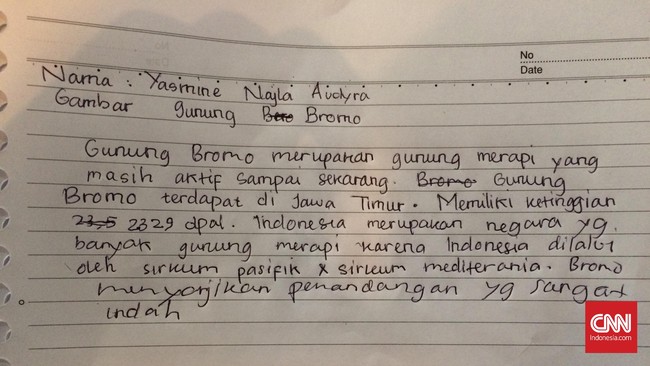 No
Date
Nama : Yasmine Najla Audyra
Gambar gunung Bromo
Gunung Bromo merupakan gunung merapi yang
masih aktif sampai sekarang. Bromo Gunung
Bromo terdapat di Jawa Timur. Memiliki ketinggian
23,5 2329 dpal. Indonesia merupakan negara yg
banyak gunung merapi karena Indonesia dilalui
oleh sirkum pasifik & sirkum mediterania. Bromo
menyajikan penandangan yg sangat
indah
CNN
Indonesia.com